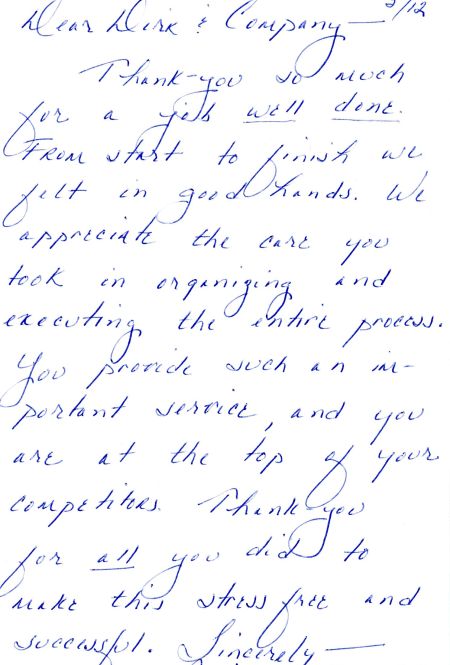 Dear Dirk & Company — 2/12
Thank-you so much
for a job well done.
From start to finish we
felt in good hands. We
appreciate the care you
took in organizing and
executing the entire process.
You provide such an im-
portant service, and you
are at the top of your
competitors. Thank-you
for all you did to
make this stress free and
successful. Sincerely —